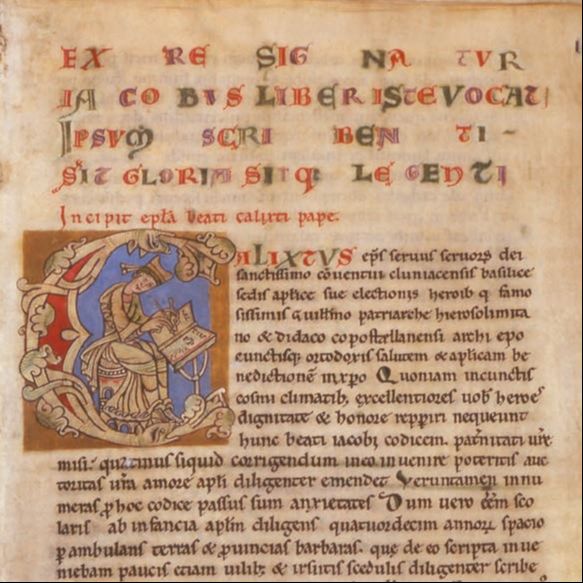 EX RE SIG NA TVR
IA CO BVS LIBER ISTE VOCATI
IPSVM SCRI BEN TI-
SIT GLORIA SITQ LE GENTI
Incipit epła beati calixti pape.
CALIXTVS ep̄s seruus seruorꝫ dei
sanctissimo cōuentui cluniacensis basilice
sedis aplice sue electionis heroib q famo
sissimis guillmo patriarche hierosolimita
no & didaco copostellanensi archi epo
cunctisq; ortodoxis salutem & aplicam be
nedictionē in xpo Quoniam in cunctis
cosmi climatib, excellentiores uob heroes
dignitate & honore repperiri nequeunt
hunc beati iacobi codicem. pat̄nitati ur̄e
misi: quatinus siquid corrigendum in eo inuenire poteritis auc
toritas ur̄a amore apli diligenter emendet Veruntamen innu
meras p hoc codice passus sum anxietates Dum uero eēm sco
laris ab infancia aplm diligens quatuordecim annorꝫ spacio
pambulans terras & puincias barbaras. que de eo scripta inue
niebam paucis etiam uilib; & irsutis scedulis diligenter scribe